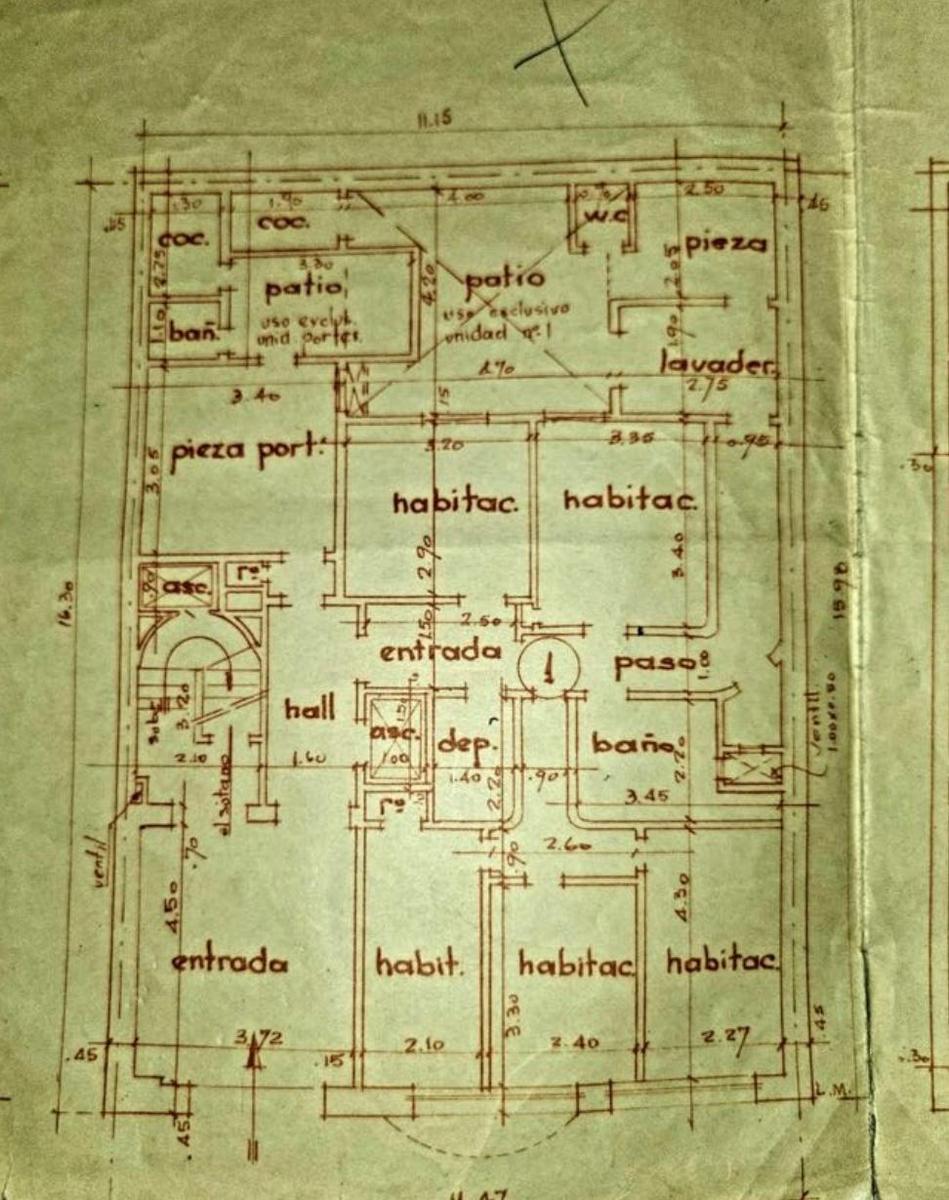 11.15
1.30
1.90
4.00
0.70
2.50
.45
coc.
coc.
w.c
pieza
2.75
3.30
4.20
2.05
patio
patio
uso exclusivo
unidad nº 1
uso exclus.
unid. porter.
1.10
bañ.
1.90
lavader.
4.70
2.75
3.40
.15
3.20
3.35
0.95
pieza port.
3.05
habitac.
habitac.
2.90
3.40
asc.
.90
16.30
15.98
2.50
1.50
entrada
1
paso
1.00
hall
sube
3.20
asc.
1.00
dep.
baño
ventil
1.00x0.80
2.10
1.60
1.40
.90
2.20
2.70
el sotano
3.45
ventil
.70
2.60
.90
4.50
4.30
entrada
habit.
habitac.
habitac.
3.30
3.72
.45
.15
2.10
2.40
2.27
.45
L.M.
.45
11.47
.30
.30